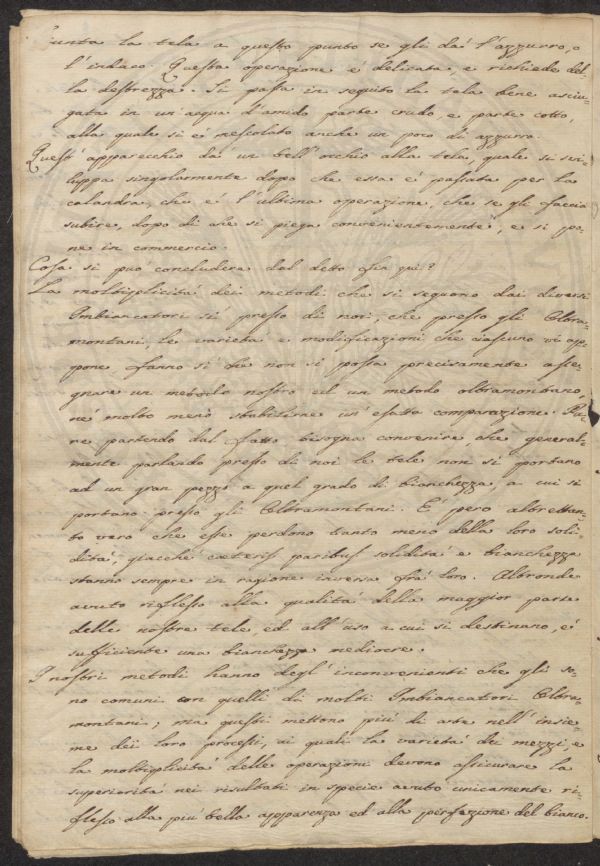 Giunta la tela a questo punto se gli dá l'azzurro, o
l'indaco. Questa operazione é delicata, e richiede del=
la destrezza. Si passa in seguito la tela bene asciu=
gata in un'acqua d'amido parte crudo, e parte cotto,
alla quale si é mescolato anche un poco di azzurro.
Quest'apparecchio dá un bell'occhio alla tela, quale si svi=
luppa singolarmente dopo che essa é passata per la
calandra, che é l'ultima operazione, che se gli faccia
subire, dopo di che si piega convenientemente, e si po=
ne in commercio.
Cosa si puó concludere dal detto fin qui?
La moltiplicitá dei metodi che si seguono dai diversi
Imbiancatori sí presso di noi, che presso gli Oltra=
montani, le varietá e modificazioni che ciascuno vi ap=
pone, fanno sí che non si possa precisamente asse=
gnare un metodo nostro ed un metodo oltramontano,
né molto meno stabilirne un'esatta comparazione. Pu=
re partendo dal fatto bisogna convenire, che general=
mente parlando presso di noi le tele non si portano
ad un gran pezzo a quel grado di bianchezza, a cui si
portano presso gli Oltramontani. É peró altrettan=
to vero che esse perdono tanto meno della loro soli=
ditá, giacché caeteris paribus soliditá e bianchezza
stanno sempre in ragione inversa frá loro. Altronde
avuto riflesso alla qualitá della maggior parte
delle nostre tele, ed all'uso a cui si destinano, é
sufficiente una bianchezza mediocre.
I nostri metodi hanno degl'inconvenienti che gli so=
no comuni con quelli di molti Imbiancatori Oltra=
montani; ma questi mettono piú di arte nell'insie=
me dei loro processi, ai quali la varietá dei mezzi, e
la moltiplicitá delle operazioni devono assicurare la
superioritá nei risultati in specie avuto unicamente ri=
flesso alla piú bella apparenza ed alla perfezione del bianco.